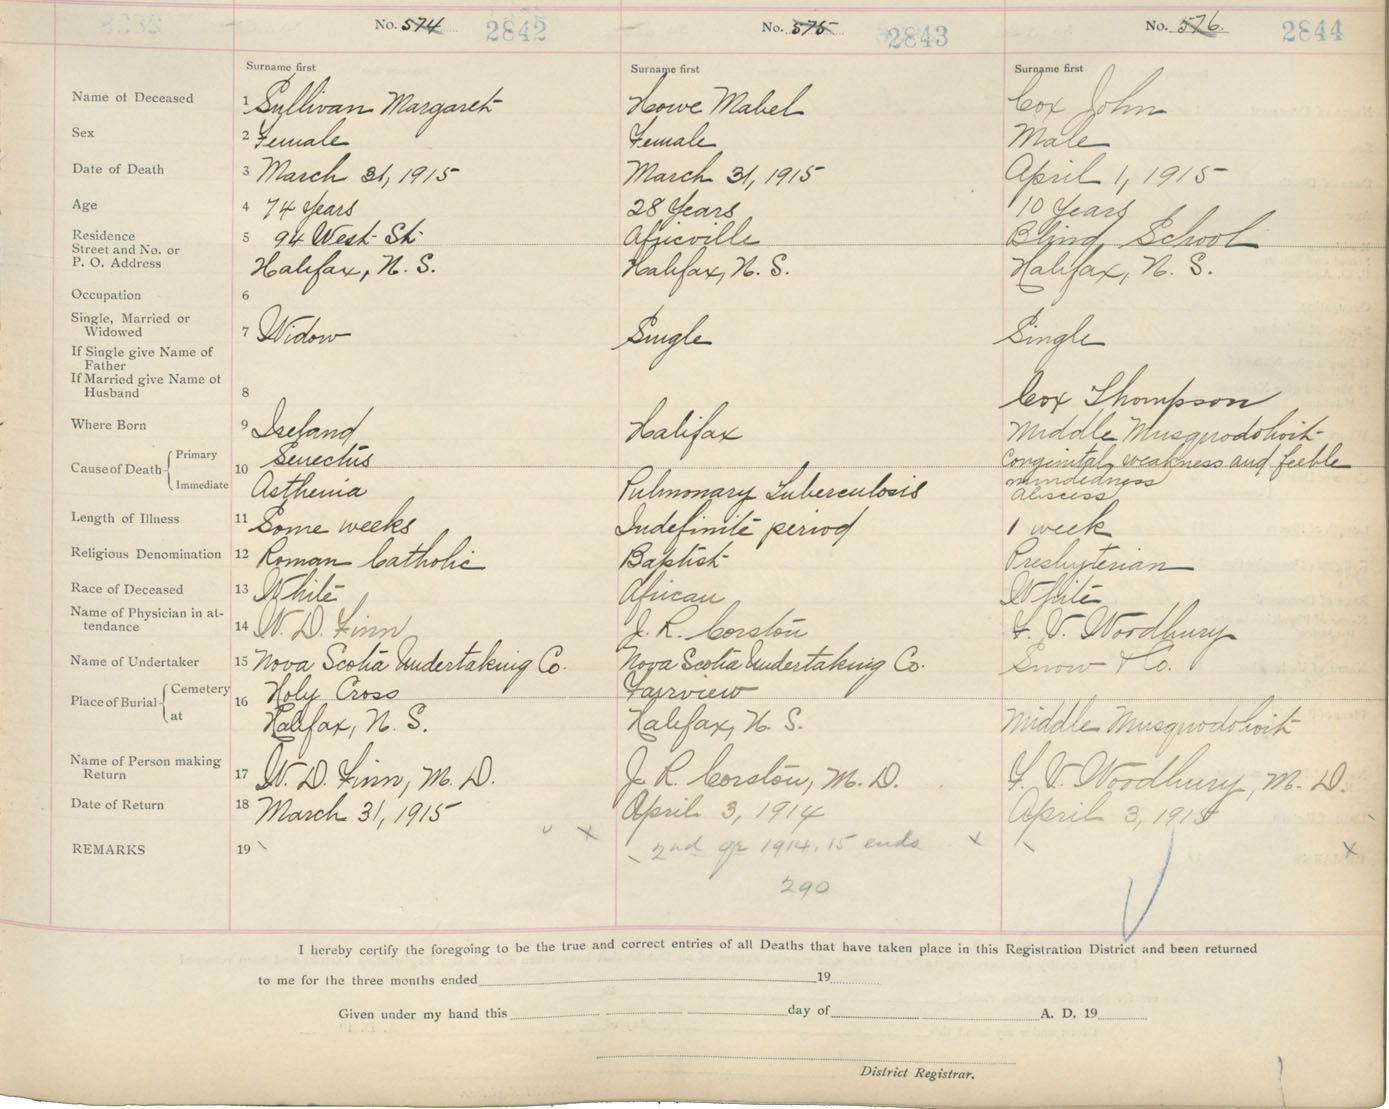 No. 574 2842 No. 575 2843 No. 576. 2844
Surname first Surname first Surname first
Name of Deceased 1 Sullivan Margaret Howe Mabel Cox John
Sex 2 Female Female Male
Date of Death 3 March 31, 1915 March 31, 1915 April 1, 1915
Age 4 74 Years 28 Years 10 Years
Residence 5 94 West St. Africville Blind School
Street and No. or
P. O. Address Halifax, N. S. Halifax, N. S. Halifax, N. S.
Occupation 6
Single, Married or
Widowed 7 Widow Single Single
If Single give Name of
Father
If Married give Name of
Husband 8 Cox Thompson
Where Born 9 Ireland Halifax Middle Musquodoboit
Cause of Death Primary 10 Senectus Congenital weakness and feeble
mindedness
Immediate Asthenia Pulmonary Tuberculosis abscess
Length of Illness 11 Some weeks Indefinite period 1 week
Religious Denomination 12 Roman Catholic Baptist Presbyterian
Race of Deceased 13 White African White
Name of Physician in at-
tendance 14 W. D. Finn J. R. Corston F. V. Woodbury
Name of Undertaker 15 Nova Scotia Undertaking Co. Nova Scotia Undertaking Co. Snow & Co.
Place of Burial Cemetery 16 Holy Cross Fairview
at Halifax, N. S. Halifax, N. S. Middle Musquodoboit
Name of Person making
Return 17 W. D. Finn, M. D. J. R. Corston, M. D. F. V. Woodbury, M. D.
Date of Return 18 March 31, 1915 April 3, 1914 April 3, 1915
REMARKS 19 2nd qr 1914.15 ends
290
I hereby certify the foregoing to be the true and correct entries of all Deaths that have taken place in this Registration District and been returned
to me for the three months ended 19
Given under my hand this day of A. D. 19
District Registrar.